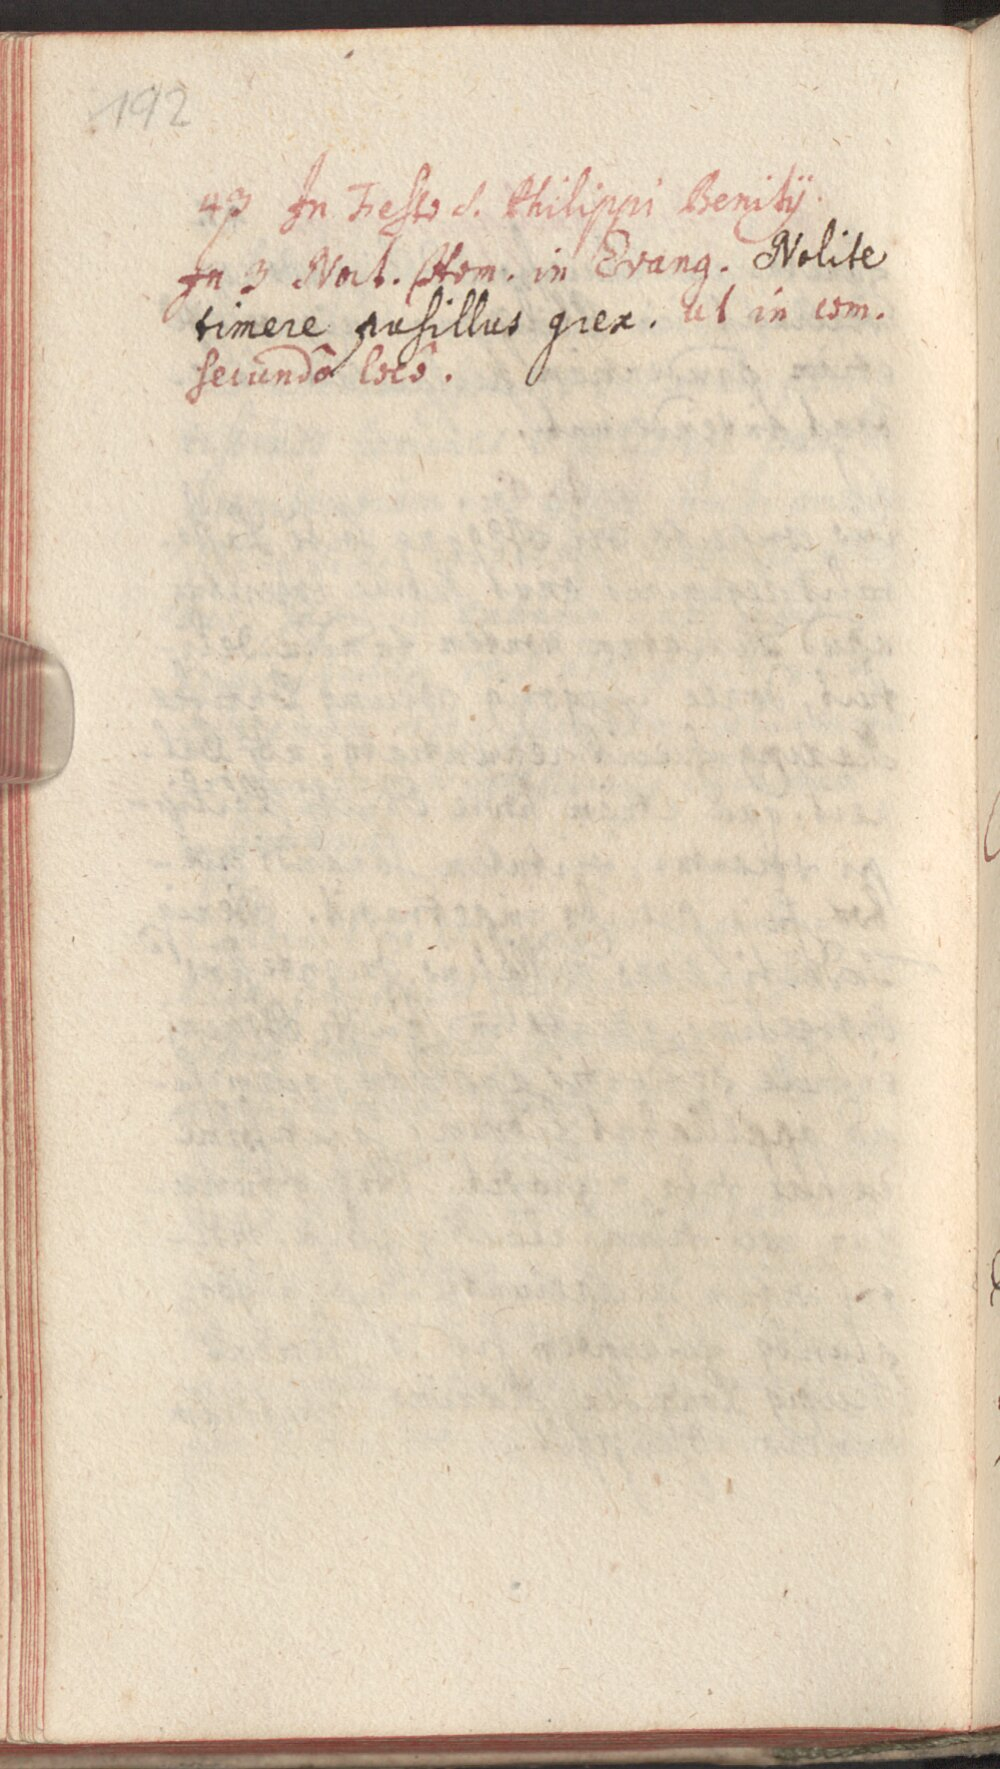 192
43 In Festo S. Philippi Benitij.
In 3 Noct. Hom. in Evang. Nolite
timere pusillus grex. ut in com.
secundô locô.